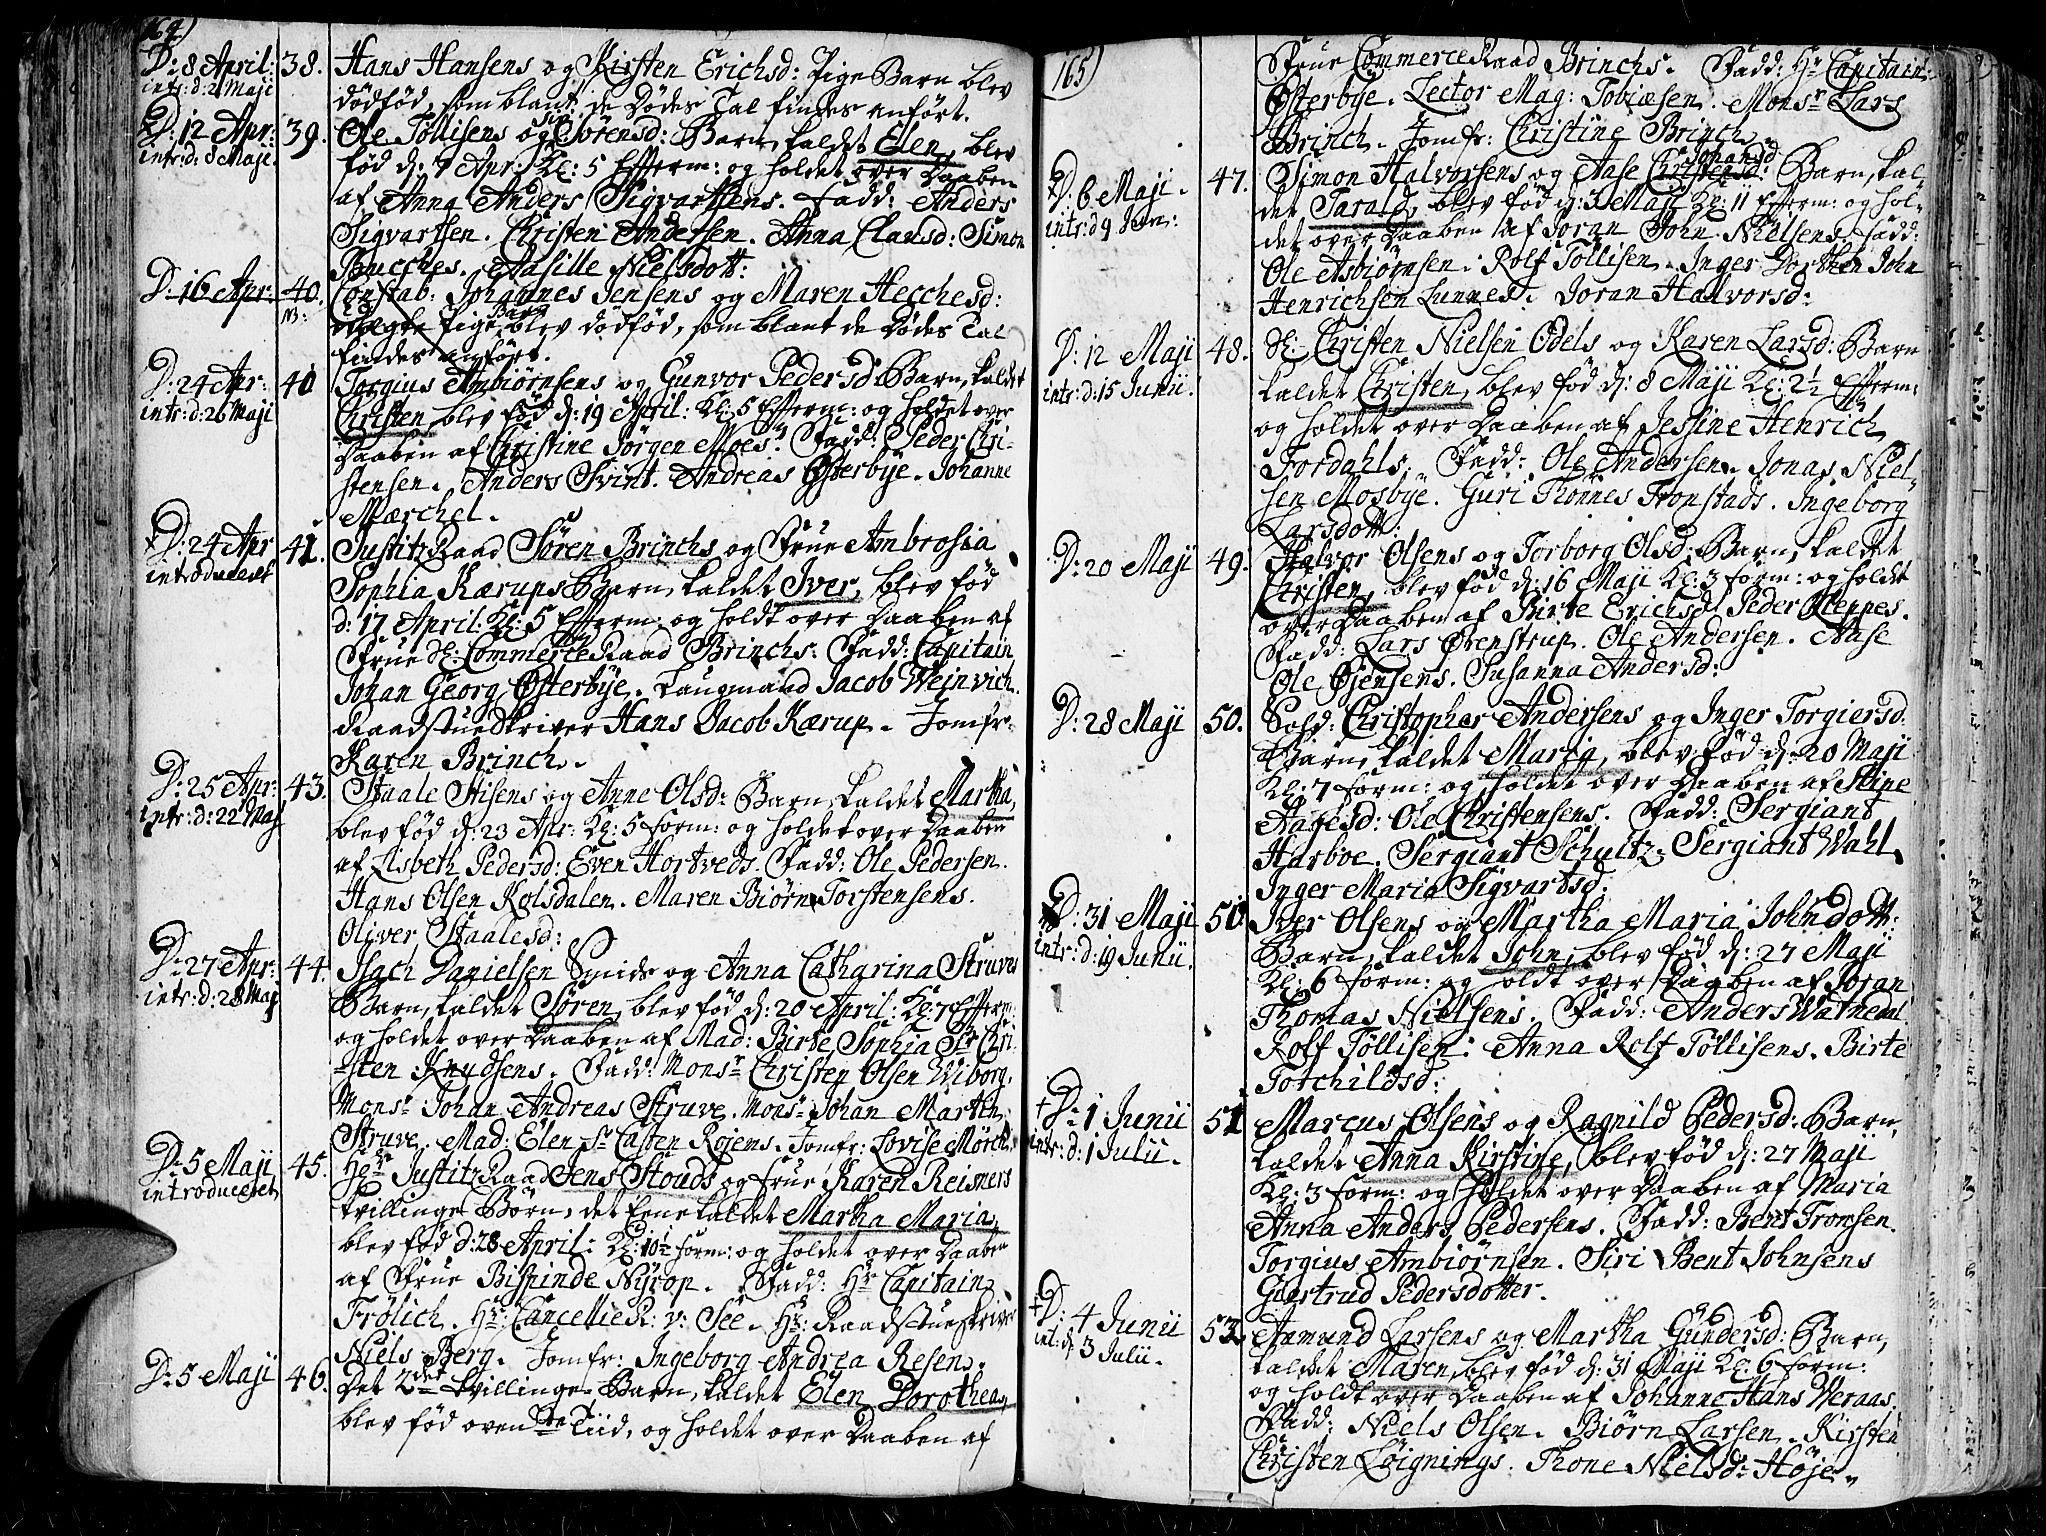 164)
D: 8 April: 38. Hans Hansens og Kirsten Erichsd: Pige Barn blev
intr: d: 21 Maji
dödfød, som blant de Dødes Tal findes anført.
D: 12 Apr: 39. Ole Töllisens og Siri Sørensd: Barn, kaldet Elen, blev
intr: d: 8 Maji.
fød d: 7 Apr: Kl: 5 Efterm: og holdet over Daaben
af Anna Anders Sigvartsens. Fadd: Anders
Sigvartsen. Christen Andersen. Anna Clausd: Simon
Bucches. Aasille Nielsdott:
D: 16 Apr: 40. Constab: Johannes Jensens og Maren Hecchesd:
NB:
ægte Pige Barn blev dödfød, som blant de Dødes Tal
findes anført.
D: 24 Apr: 40 Torgius Ambiörnsens og Gunvor Pedersd: Barn, kaldet
intr: d: 26 Maji
Christen blev fød d: 19 April: Kl: 5 Efterm: og holdet over
Daaben af Christine Jörgen Moes. Fadd: Peder Chri-
stensen. Anders Svint. Andreas Østerbye. Johanne
Mærchel.
D: 24 Apr 41. JustitzRaad Sören Brinchs og Frue Ambrosia
introduceret
Sophia Kærups Barn, kaldet Iver, blev fød
d: 17 April: Kl: 5 Efterm: og holdt over Daaben af
Frue Sl: CommerceRaad Brinchs. Fadd: Capitain
Johan Georg Østerbye. Laugmand Jacob Weinvich.
RaadstueSkriver Hans Jacob Kærup. Jomfr:
Karen Brinch.
D: 25 Apr: 43. Staale Stisens og Anne Olsd: Barn, kaldet Martha,
intr: d: 22 Maj
blev fød d: 23 Apr: Kl: 5 form: og holdet over Daaben
af Lisbeth Pedersd: Even Hortveds. Fadd: Ole Pedersen.
Hans Olsen Rolsdalen. Maren Biörn Torstensens.
Oliver Staalesd:
D: 27 Apr: 44. Isach Danielsen Smids og Anna Catharina Struves
intr: d: 28 Maj
Barn, kaldet Sören, blev fød d: 20 April: Kl: 7 Efterm:
og holdet over Daaben af Mad: Birte Sophia Sr Chri-
sten Knudsens. Fadd: Monsr Christen Olsen Wiborg.
Monsr Johan Andreas Struve. Monsr Johan Martin
Struve. Mad: Elen Sr Casten Röjems. Jomfr: Lovise Mörch.
D: 5 Maji 45. Hr JustitzRaad Jens Stouds og Frue Karen Reimers
introduceret
Tvillinge Börn, det Eene kaldet Martha Maria,
blev fød d: 28 April: Kl: 10½ form: og holdet over Daaben
af Frue Bispinde Nyrop. Fadd: Hr Capitain
Frölich. Hr: CancellieR: v: See. Hr: Raadstueskriver
Niels Berg. Jomfr: Ingeborg Andrea Resen.
D: 5 Maji 46. Det 2det Tvillinge Barn, kaldet Elen Dorothea,
blev fød ovenstn Tiid, og holdet over Daaben af
165)
Frue CommerceRaad Brinchs. Fadd: Hr Capitain
Østerbye. Lector Mag: Tobiæsen. Monsr Lars
Brinch. Jomfr: Christine Brinch.
D: 6 Maji. 47. Simon Halvorsens og Aase Christensd: Johansd Barn, kal-
intr: d 9 Jun:
det Tarald, blev fød d: 3 Maji Kl: 11 Efterm: og hol-
det over Daaben af Joran John Nielsens. Fadd:
Ole Asbiörnsen. Rolf Töllisen. Inger Dorthea John
Henrichsen Lunnes. Joran Halvorsd:
D: 12 Maji 48. Sl: Christen Nielsen Odels og Karen Larsd: Barn
intr: d: 15 Junii.
kaldet Christen, blev fød d: 8 Maji Kl: 2½ Efterm:
og holdet over Daaben af Jessine Henrich
Fordahls. Fadd: Ole Andersen. Jonas Niel-
sen Mosbye. Guri Thönnes Tronstads. Ingeborg
Larsdott:
D: 20 Maji 49. Halvor Olsens og Torborg Olsd: Barn, kaldet
Christen, blev fød d: 16 Maji Kl: 3 form: og holdt
over Daaben af Birte Erichsd: Peder Kleppes.
Fadd: Lars Ørenstrup. Ole Andersen. Aase
Ole Øjensens. Susanna Andersd:
D: 28 Maji 50. Sold: Christopher Andersens og Inger Torgiersd:
Barn, kaldet Maria, blev fød d: 20 Maji
Kl: 7 form: og holdet over Daaben af Stine
Aagesd: Ole Christensens. Fadd: Sergiant
Harboe. Sergiant Schultz. Sergiant Wahl.
Inger Maria Sigvartsd:
D: 31 Maji 51 Iver Olsens og Martha Maria Johndott:
intr: d: 19 Junii.
Barn, kaldet John, blev fød d: 27 Maji
Kl: 6 form: og holdt over Daaben af Joran
Thomas Nielsens. Fadd: Anders Watnedal.
Rolf Töllisen. Anna Rolf Töllisens. Birte
Torchildsd:
D: 1 Junii 51 Marcus Olsens og Ragnild Pedersd: Barn,
intr: d: 1 Julii.
kaldet Anna Kirstine, blev fød d: 27 Maji
Kl: 3 form: og holdet over Daaben af Maria
Anna Anders Pedersens. Fadd: Bent Tronsen.
Torgius Ambiörnsen. Siri Bent Johnsens
Giertrud Pedersdotter.
D: 4 Junii 53. Anmund Larsens og Martha Gundersd: Barn,
int: d: 3 Julii.
kaldet Maren, blev fød d: 31 Maji Kl: 6 form:
og holdt over Daaben af Johanne Hans Weraas.
Fadd: Niels Olsen. Biörn Larsen. Kirsten
Christen Löignings. Thone Nielsd: Höje.